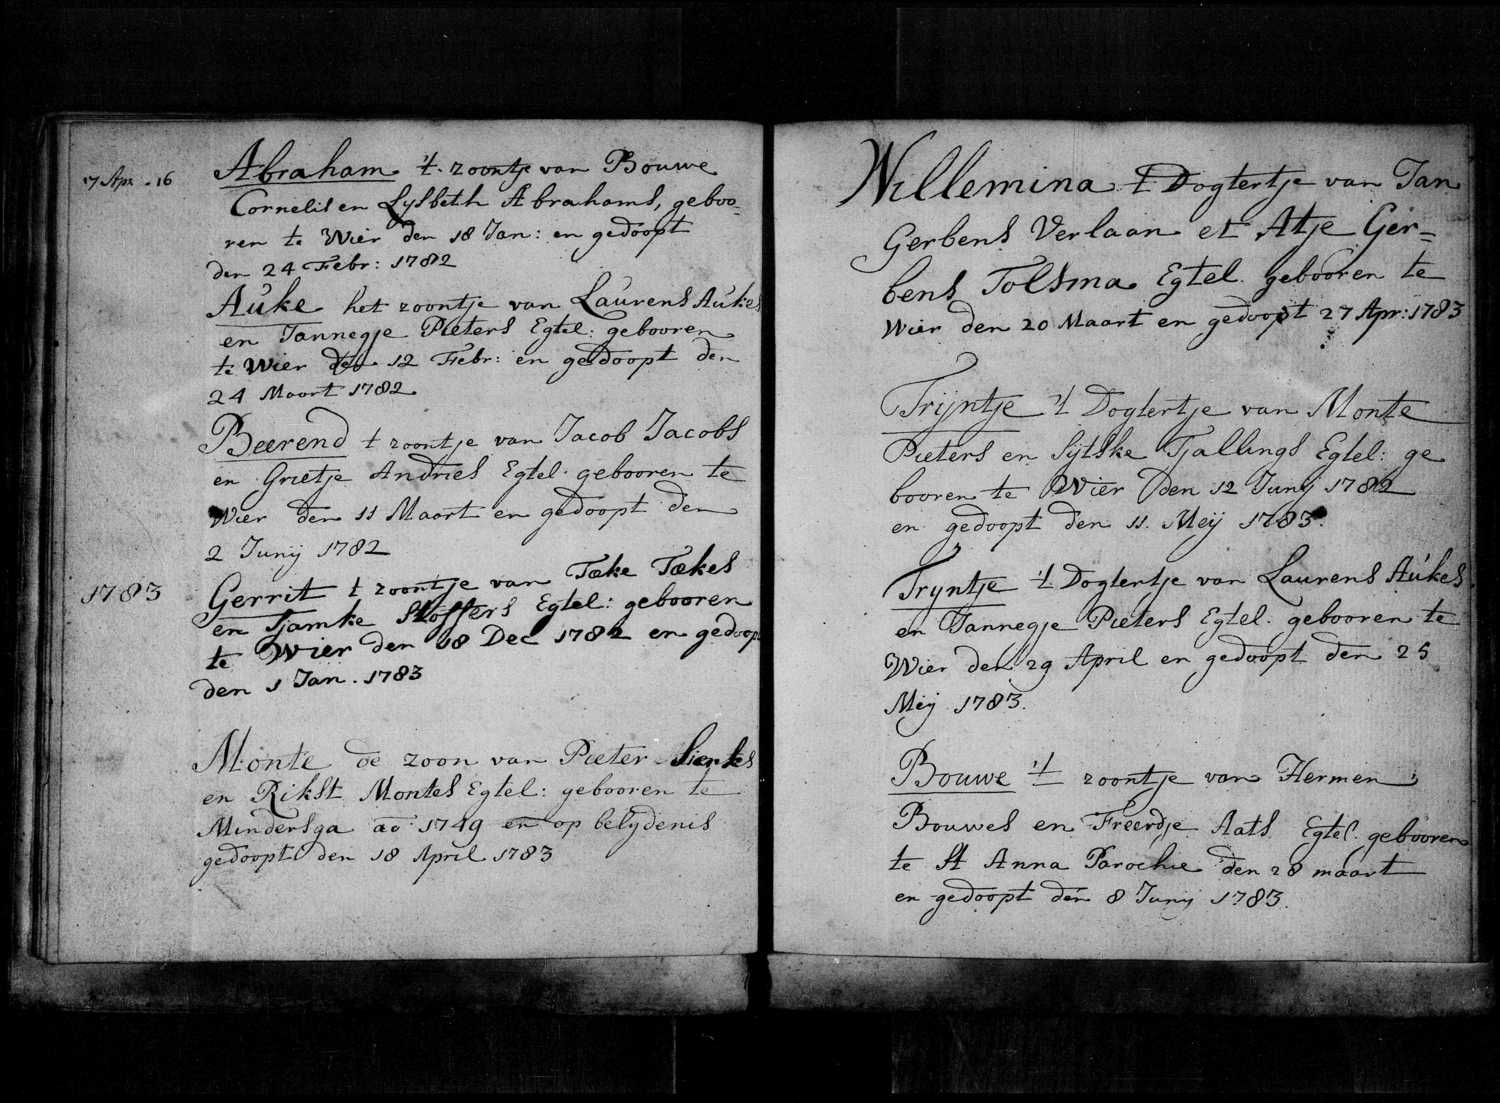 7 Apr. 16
Abraham 't zoontje van Bouwe
Cornelis en Lysbeth Abrahams, geboo=
ren te Wier den 18 Jan: en gedoopt
den 24 Febr: 1782
Auke het zoontje van Laurens Aukes
en Jannegje Pieters Egtel: gebooren
te Wier den 12 Febr: en gedoopt den
24 Maart 1782
Beerend t zoontje van Jacob Jacobs
en Grietje Andries Egtel. gebooren te
Wier den 11 Maart en gedoopt den
2 Junij 1782
1783
Gerrit t zoontje van Tæke Tækes
en Tjamke Stoffers Egtel: gebooren
te Wier den 18 Dec 1782 en gedoopt
den 1 Jan. 1783
Monte de zoon van Pieter Sierks
en Rikst Montes Egtel: gebooren te
Mindersga ao 1749 en op belydenis
gedoopt den 18 April 1783
Willemina 't Dogtertje van Jan
Gerbens Verlaan et Atje Ger=
bens Tolsma Egtel. gebooren te
Wier den 20 Maart en gedoopt 27 Apr: 1783
Trijntje 't Dogtertje van Monte
Pieters en Sijtske Tjallings Egtel: ge
booren te Wier den 12 Junij 1782
en gedoopt den 11. Meij 1783.
Tryntje 't Dogtertje van Laurens Aukes
en Jannegje Pieters Egtel. gebooren te
Wier den 29 April en gedoopt den 25
Meij 1783.
Bouwe 't zoontje van Hermen
Bouwes en Freerdje Aats Egtel. gebooren
te St Anna Parochie den 28 maart
en gedoopt den 8 Junij 1783.